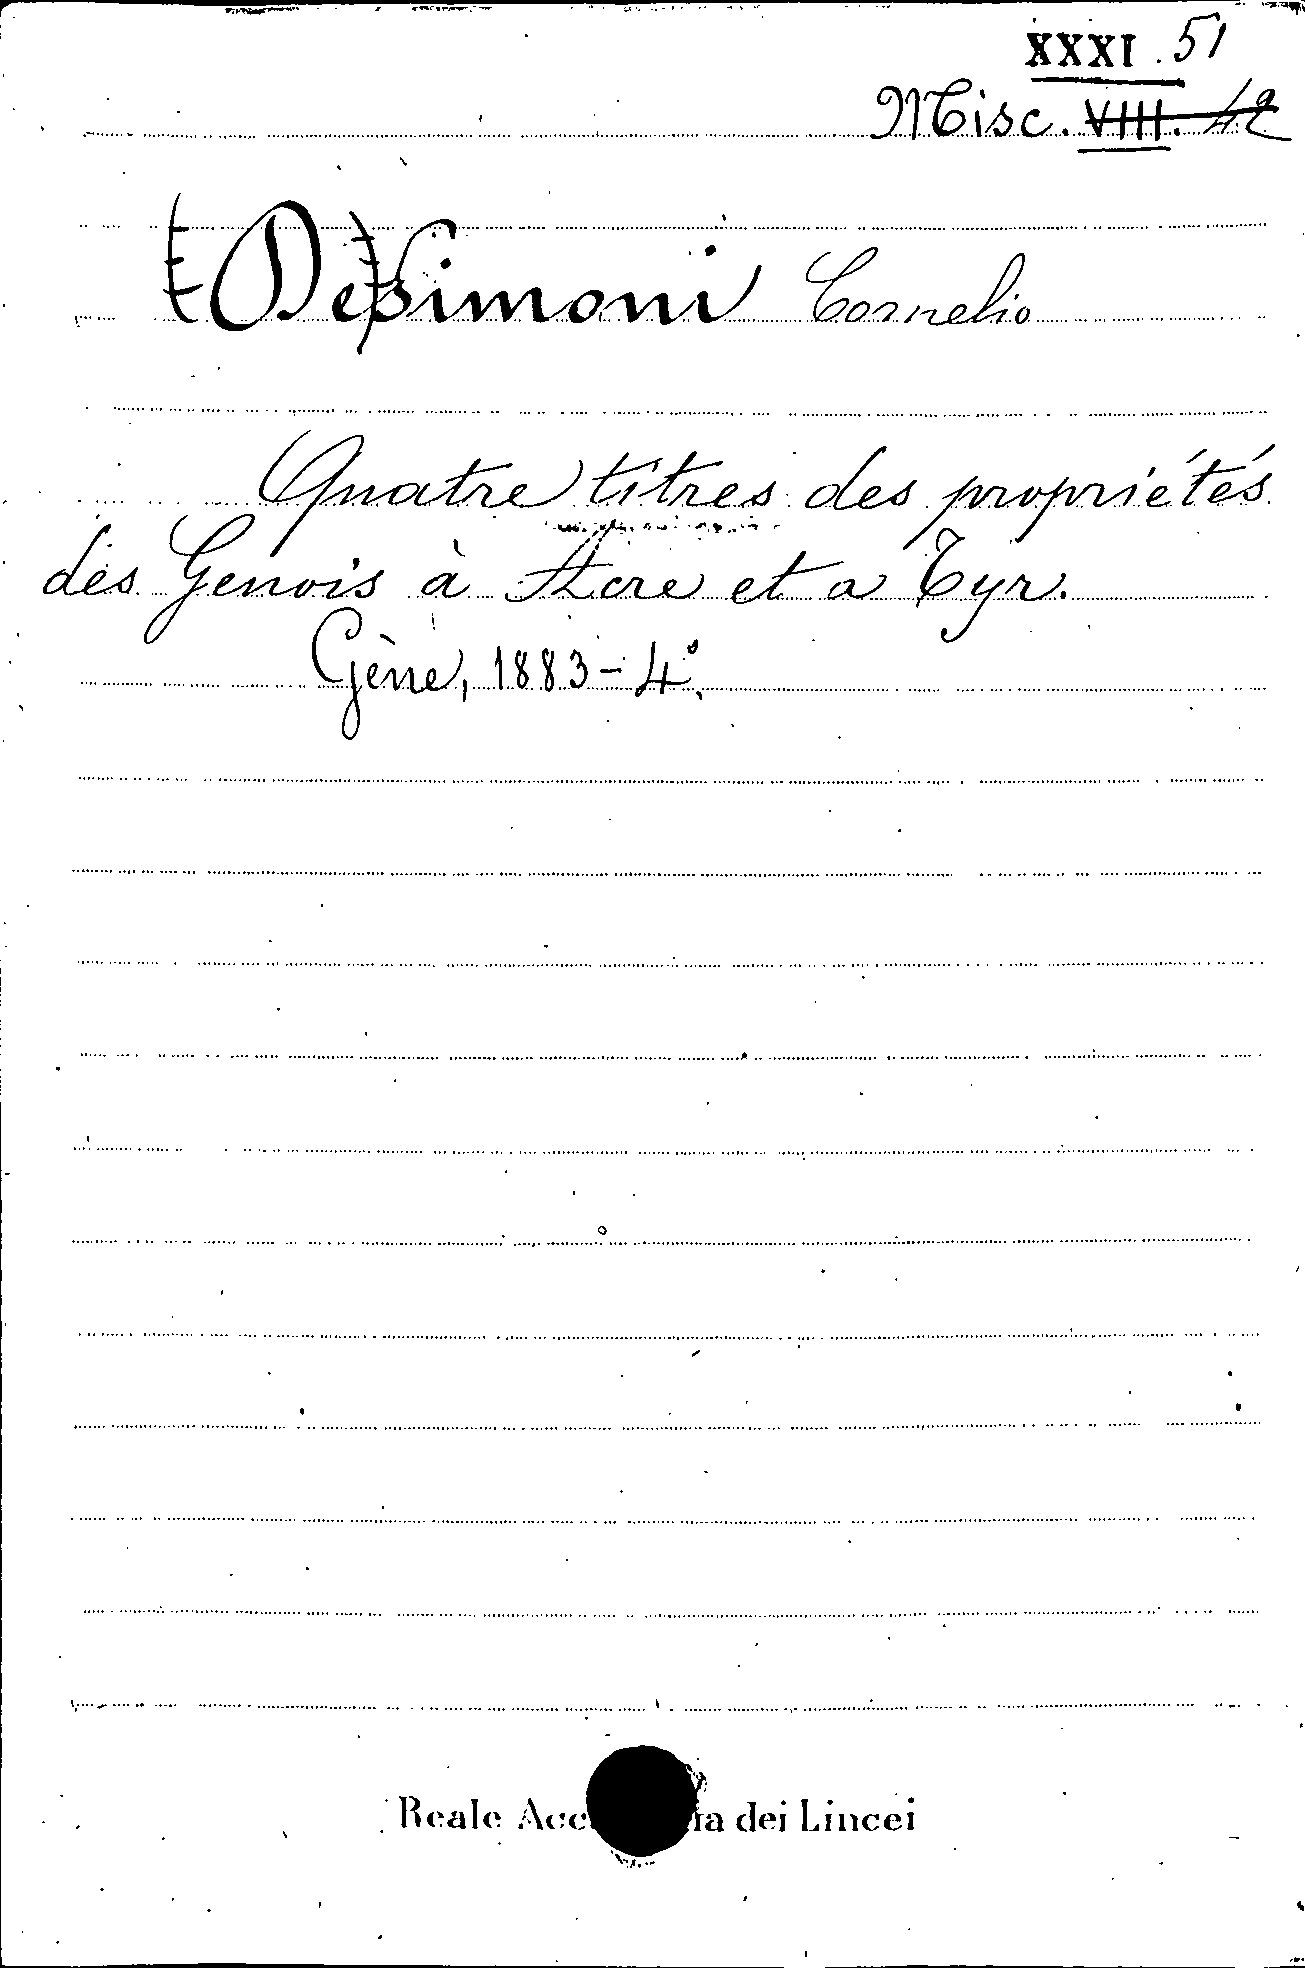 XXXI. 51
Misc. VIII. 42
(De)Simoni Cornelio
Quatre titres des propriétés
des Genois à Acre et a Tyr.
Gêne, 1883 - 4°.
Reale Acc dei Lincei